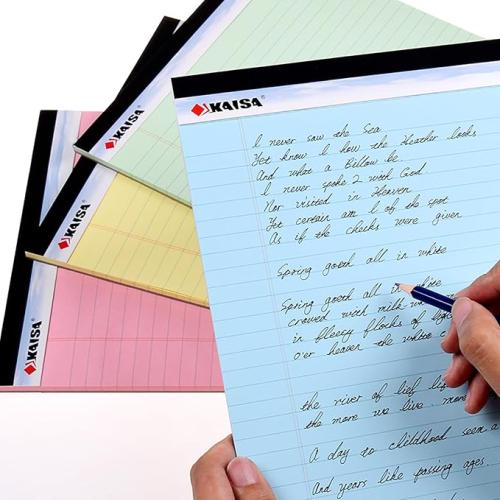 KAISA®
KAISA
KAISA
KAISA
I never saw the Sea
Yet know I how the Heather looks
And what a Billow be
I never spoke with God
Nor visited in Heaven
Yet certain am I of the spot
As if the checks were given
Spring goeth all in white
Spring goeth all in white
crowed with milk
in fleecy flocks of
o'er heaven the white
the river of lief
the more we live, more
A day to childhood seem a
And years like passing ages.